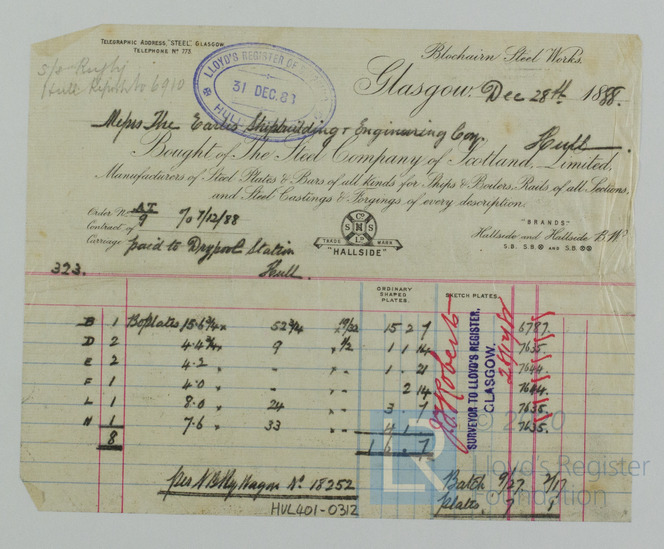 TELEGRAPHIC ADDRESS, "STEEL", GLASGOW.
TELEPHONE Nº 773.
S/o Rugby
Hull Report No 6910
LLOYD'S REGISTER OF
31 DEC. 88
HULL
Blochairn Steel Works.
Glasgow, Dec 28th 1888.
Messrs The Earles Shipbuilding & Engineering Coy. Hull
Bought of The Steel Company of Scotland, Limited,
Manufacturers of Steel Plates & Bars of all kinds for Ships & Boilers, Rails of all Sections,
and Steel Castings & Forgings of every description.
Order No AT/9 7/12/88
Contract of
Carriage paid to Drypool Station
Hull.
TRADE MARK
"HALLSIDE"
"BRANDS"
Hallside and Hallside B.W
S.B. S.B. AND S.B.
323.
ORDINARY SHAPED PLATES.
SKETCH PLATES.
B 1 Bo Plates 15.6¾ " 52¾ " 19/32 15 2 7 6787.
D 2 4.4¾ " 9 " ½ 1 1 14 7635.
E 2 4.2 " " " 1 " 21 7644.
F 1 4.0 " " " 2 14
L 1 8.0 " 24 " " 3 " 7 7635.
H 1 7.6 " 33 " " 4 1 7635.
8 7
SURVEYOR TO LLOYD'S REGISTER,
GLASGOW.
per N B Ry Wagon No 18252
Batch 9/27 7/17
Plates 7 1
HUL401-0312
LR
© 2020
Lloyd's Register
Foundation